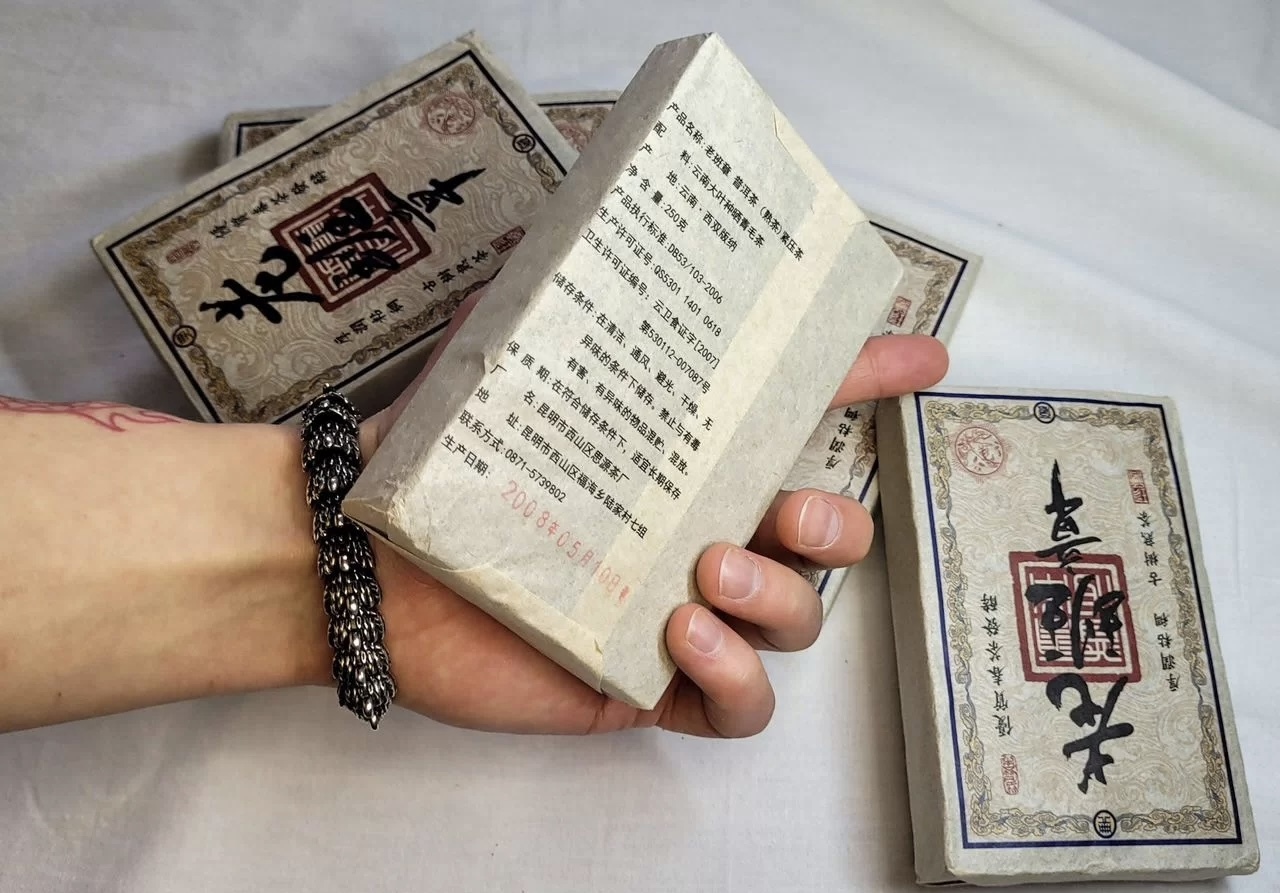 产品名称:老班章 普洱茶 (熟茶)紧压茶
配 料:云南大叶种晒青毛茶
产 地:云南·西双版纳
净含量:250克
产品执行标准:DB53/103-2006
生产许可证号:QS5301 1401 0618
卫生许可证编号:云卫食证字[2007]
第530112-007087号
储存条件:在清洁、通风、避光、干燥、无
异味的条件下储存。禁止与有毒
有害、有异味的物品混贮、混放。
保 质 期:在符合储存条件下,适宜长期保存
厂 名:昆明市西山区思源茶厂
地 址:昆明市西山区福海乡陆家村七组
联系方式:0871-5739802
生产日期:
2008年05月10日
優質春茶發酵
老班章
古樹熟茶
厚潤粘稠
厚潤粘稠
優質春茶發酵
老班章
古樹熟茶
厚潤粘稠